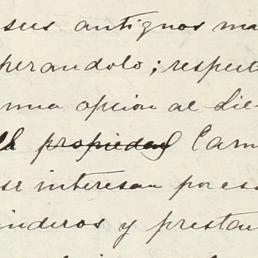 sus antiguos ma
perandolo; respect
una opción al die
propiedad Carn
se interesan por es
inderos y prestan